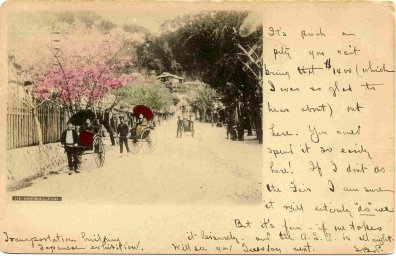 It's such an
pity you can't
bring that $1400 (which
I was so glad to
hear about) out
here. You could
spend it so easily
here! If I don't do
the Fair I am sure
it will entirely "do" me.
But it's fun - if one takes
it leisurely - and the A.I.R. is all right.
Will see you Tuesday next.
Transportation building
Japanese exhibition.